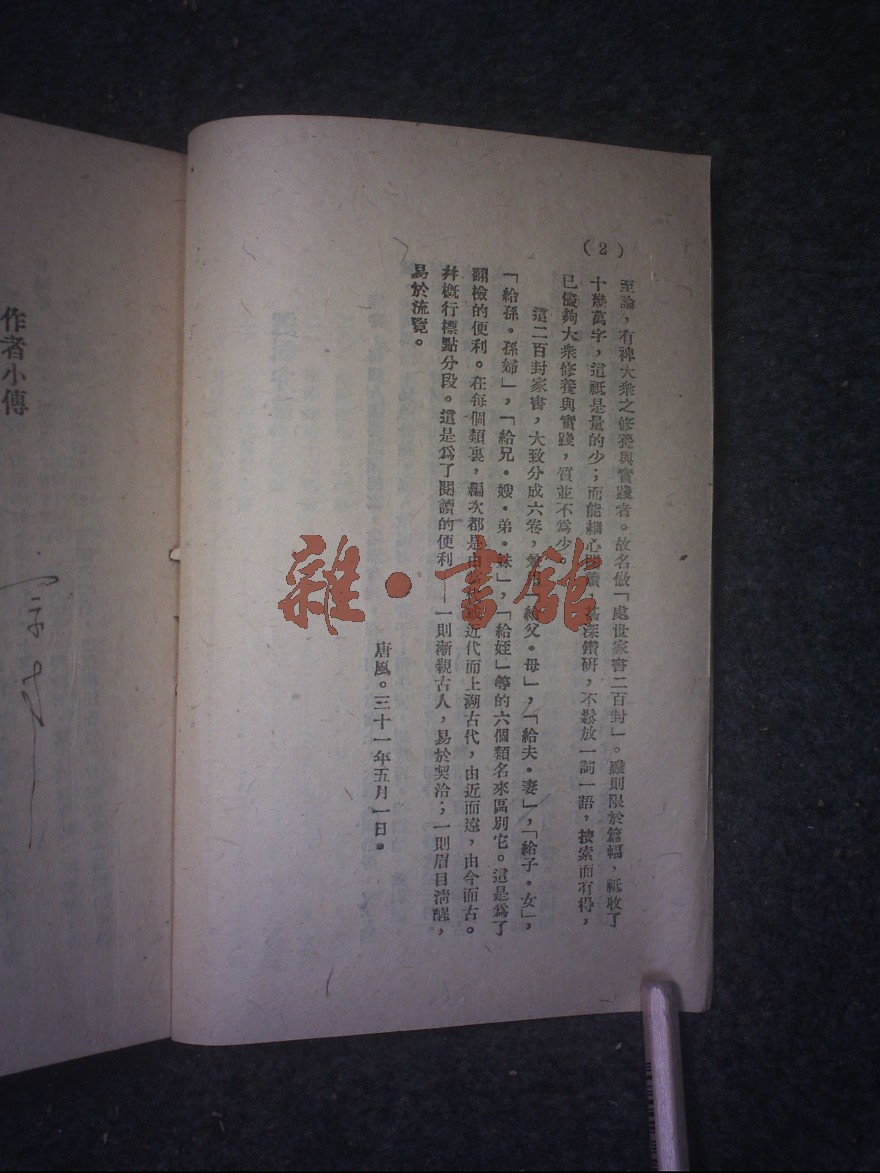 (2)
至論，有裨大衆之修養與實踐者。故名做「處世家書二百封」。雖則限於篇幅，祗收了
十幾萬字，這祗是量的少；而能細心 深鑽研，不鬆放一詞一語，搜索而有得，
已儘夠大衆修養與實踐，質並不爲少
這二百封家書，大致分成六卷， 給父・母」，「給夫・妻」，「給子・女」，
「給孫・孫婦」，「給兄・嫂・弟・妹」，「給姪」等的六個類名來區別它。這是爲了
翻檢的便利。在每個類裏，編次都是由 近代而上溯古代，由近而遠，由今而古。
幷概行標點分段。這是爲了閱讀的便利——一則漸親古人，易於契洽；一則眉目清醒，
易於流覽。
唐風。三十一年五月一日。
作者小傳
雜・書館